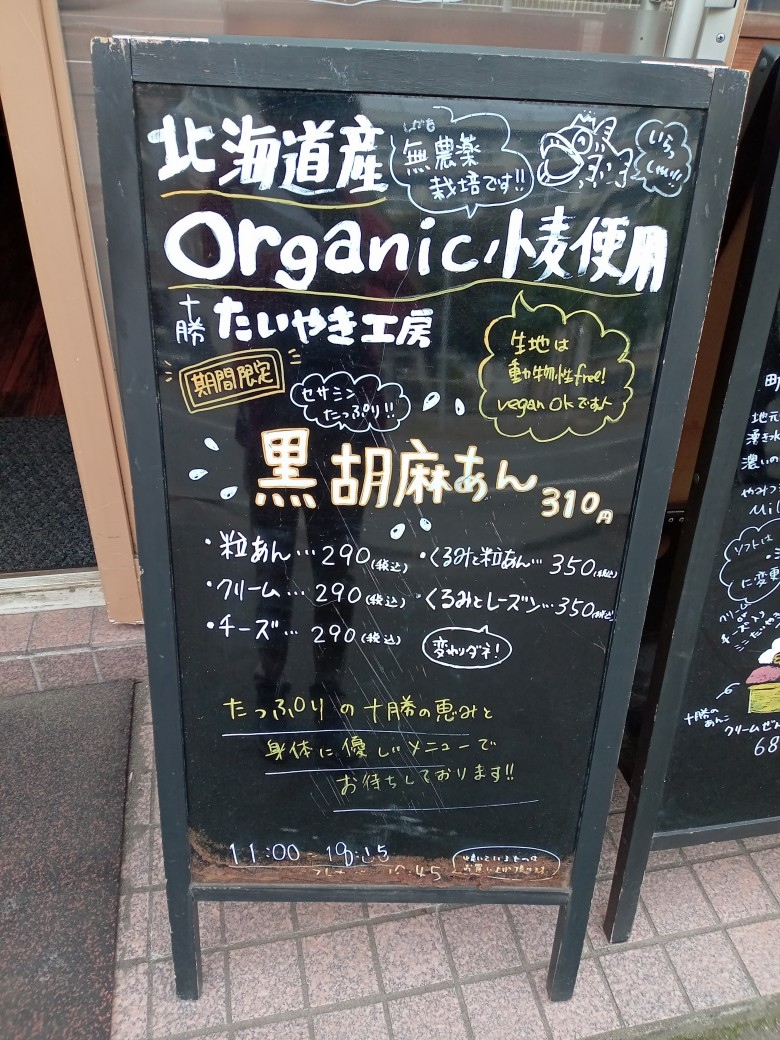 北海道産
しかも
無農薬
栽培です!!
いらっ
しゃい!!
Organic小麦使用
十勝 たいやき工房
生地は
動物性free!
vegan okです♪
期間限定
セサミン
たっぷり!!
黒胡麻あん 310円
・粒あん…290(税込)
・クリーム…290(税込)
・チーズ…290(税込)
・くるみと粒あん…350(税込)
・くるみとレーズン…350(税込)
変わりダネ!
たっぷりの十勝の恵みと
身体に優しいメニューで
お待ちしております!!
11:00-18:15
地元
湧き水
濃いの
ソフトは
に変更
クリーム
チーズ入り
十勝の
あんこ
クリームぜん
68